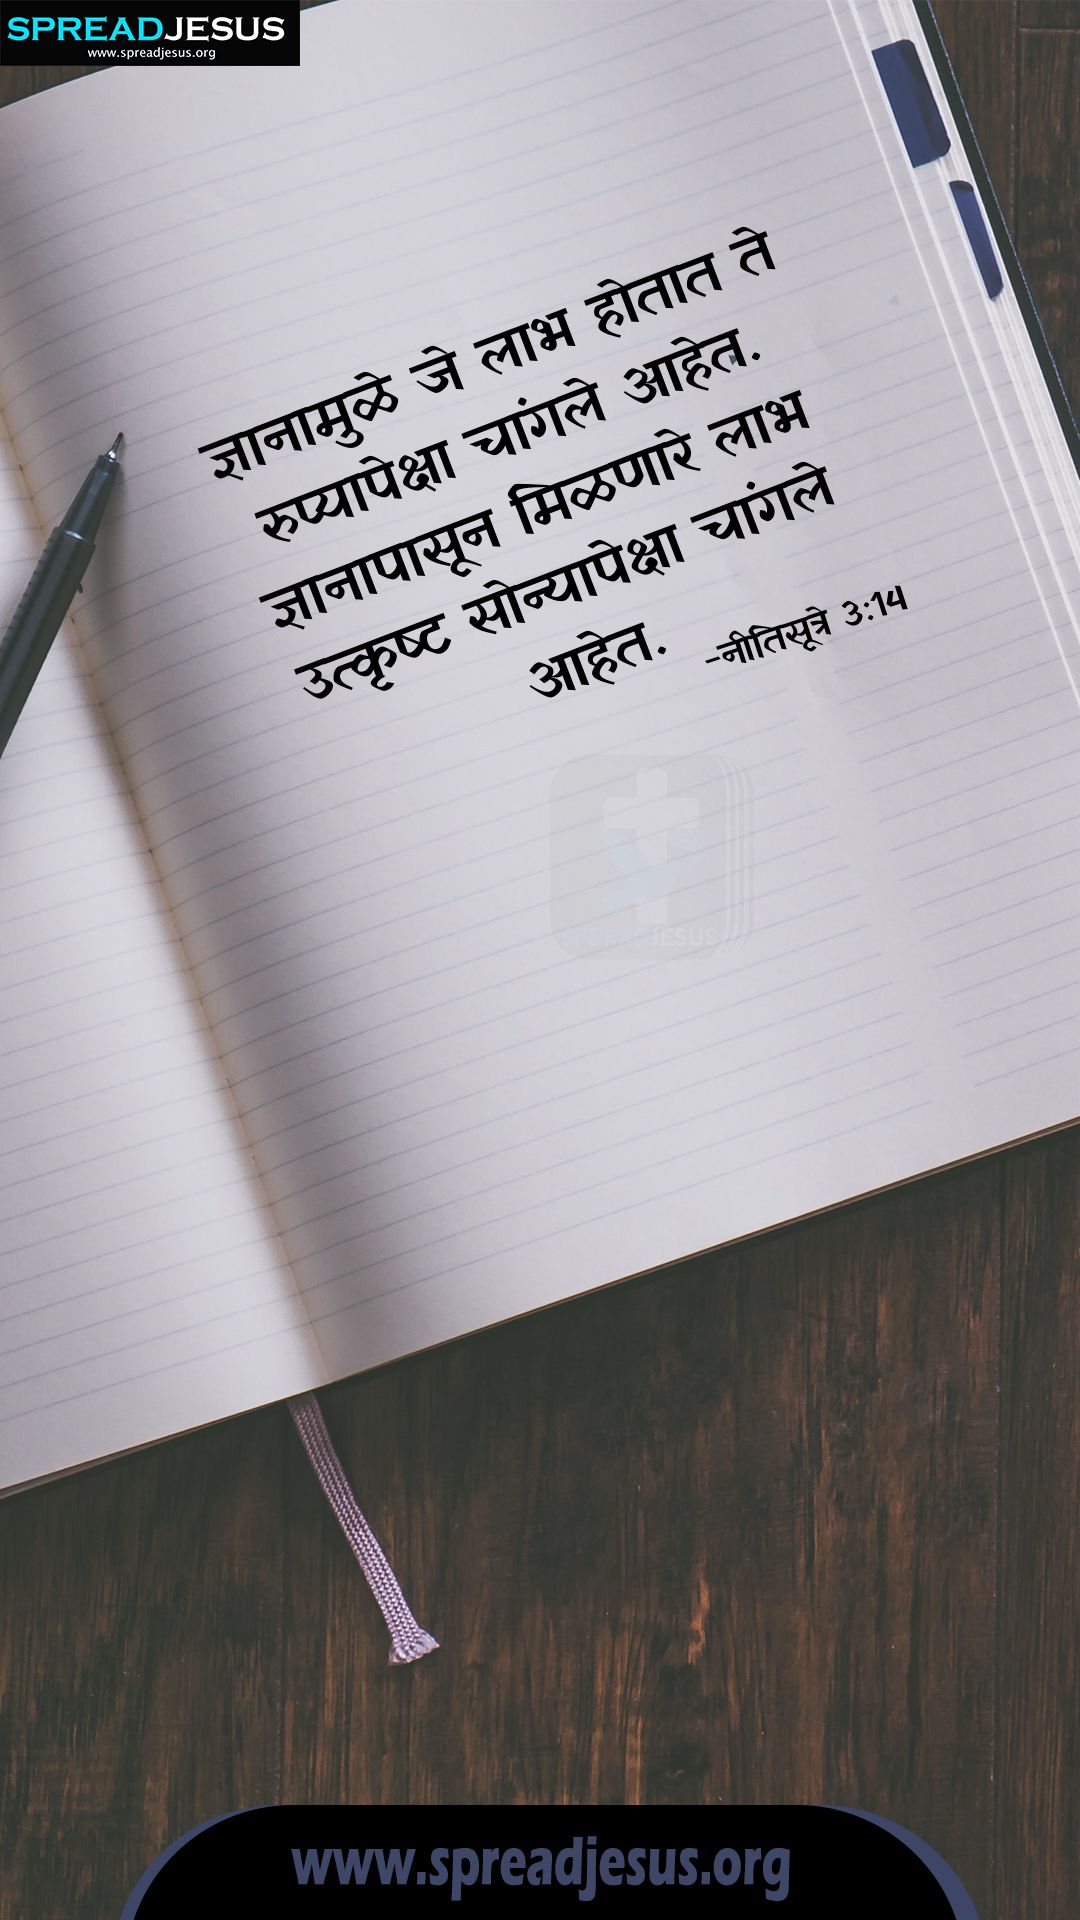 SPREADJESUS
www.spreadjesus.org
ज्ञानामुळे जे लाभ होतात ते
रुप्यापेक्षा चांगले आहेत.
ज्ञानापासून मिळणारे लाभ
उत्कृष्ट सोन्यापेक्षा चांगले
आहेत. -नीतिसूत्रे 3:14
SPREADJESUS
www.spreadjesus.org